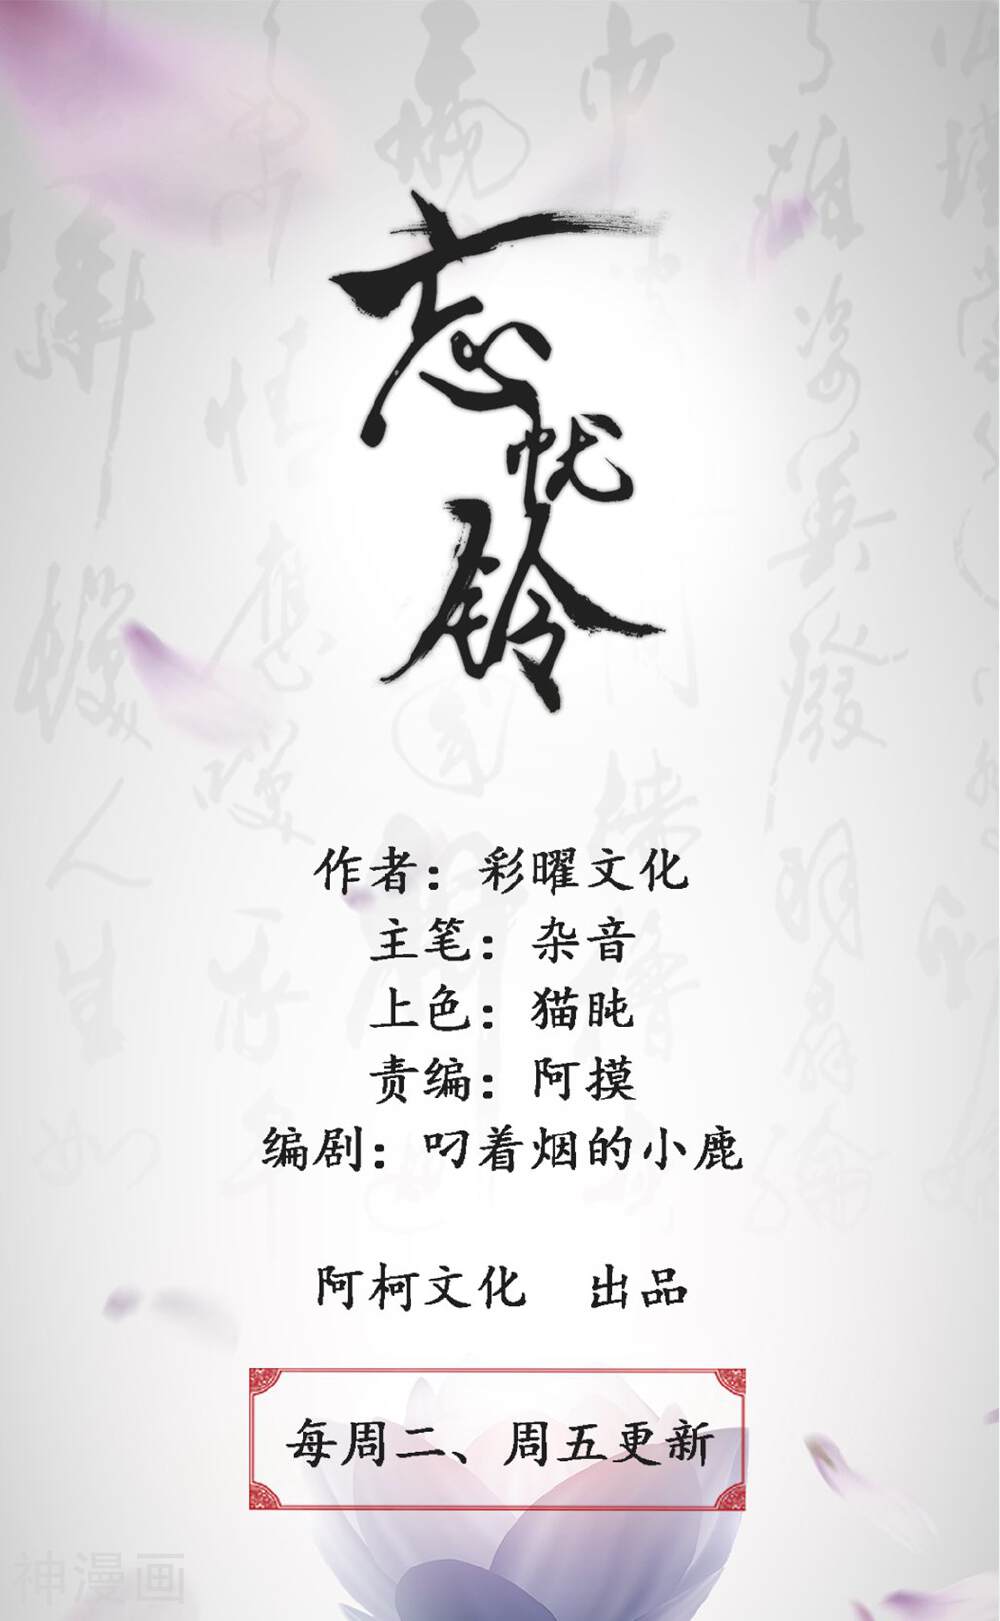 忘忧铃
作者：彩曜文化
主笔：杂音
上色：猫盹
责编：阿摸
编剧：叼着烟的小鹿
阿柯文化 出品
每周二、周五更新
神漫画